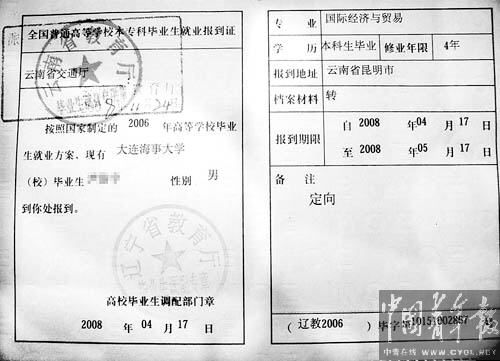 全国普通高等学校本专科毕业生就业报到证
云南省交通厅
按照国家制定的 2006 年高等学校毕业
生就业方案、现有 大连海事大学
(校)毕业生 性别 男
到你处报到。
辽宁省教育厅
高校毕业生调配部门章
2008 年 04 月 17 日
专业 国际经济与贸易
学历 本科生毕业 修业年限 4年
报到地址 云南省昆明市
档案材料 转
报到期限 自 2008 年 04 月 17 日
至 2008 年 05 月 17 日
备注
定向
(辽教2006) 毕字第10151002857 号
云南省教育厅
中国青年报
中青在线 www.cyol.net